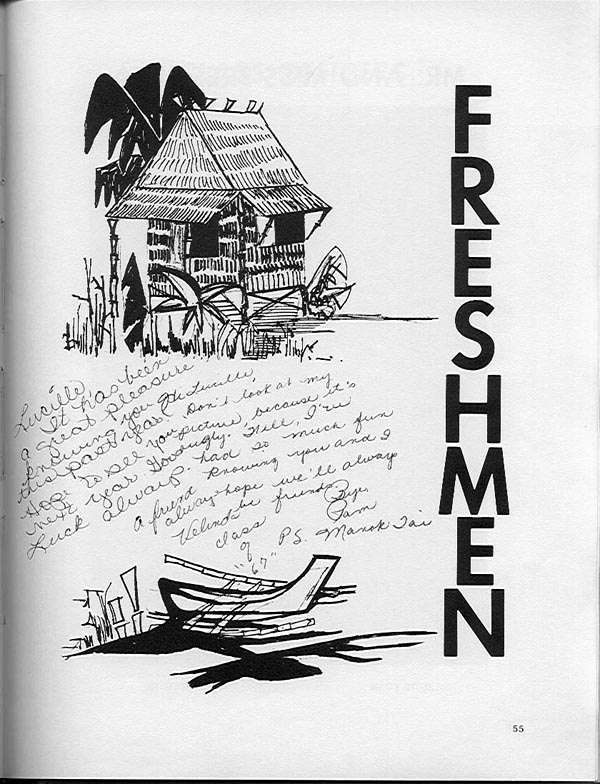 FRESHMEN
Lucille,
It has been
a great pleasure
knowing you
this past year.
Hope to see you
next year. Good
Luck always.
A friend
always
Velinda
Class
of
"67"
Hi Lucille,
Don't look at my
picture, because it's
ugly. Well, I've
had so much fun
knowing you and I
hope we'll always
be friends.
Bye,
Pam
P.S. Manok Tai
55